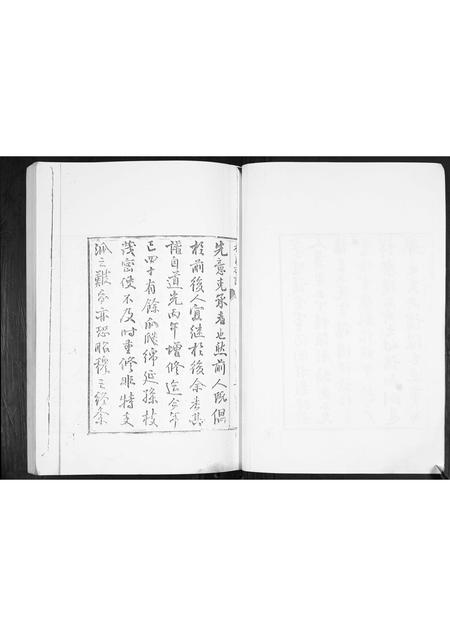 先意克承者也然前人既倡
於前後人實繼於後余考其
譜自道光丙午增修迄今年
已四十有餘ᅠ瓞綿延孫枝
茂密使不及時重修非特支
派之難分亦恐昭穆之經紊